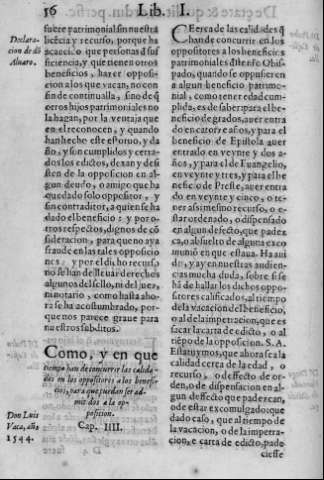 56
Lib. I.
Declara-
cion de dõ
Aluaro.
fuere patrimonial sin nuestra
licẽcia y recurso, porque ha
acaecido que personas d' suf
ficiencia, y que tienen otros
beneficios, hazer opposi-
cion a los que vacan, no con
fin de continualla, sino de q̃
otros hijos patrimoniales no
la hagan, por la ventaja que
en el reconocen, y quando
han hecho este estoruo, y da
ño, y son cumplidos y cerra-
dos los edictos, dexan y desi
sten de la opposicion en al-
gun deudo, o amigo que ha
quedado solo oppositor, y
sin contraditor, a quien se ha
dado el beneficio: y por o-
tros respectos, dignos de cõ
sideracion, para que no aya
fraude en las tales oppositio
nes: y por el dicho recurso,
no se han de lleuar derechos
algunos del sello, ni del juez,
ni notario, como hasta aho-
ra se ha acostumbrado, por-
que nos parece graue para
nuestros subditos.
Como, y en que
tiempo han de concurrir las calida-
des en los oppositores a los benefi-
cios, para que puedan ser ad-
mitidos a la op-
posicion.
Don Luis
Vaca, año
1544.
Cap. IIII.
CErca de las calidades q̃
han de concurrir en los
oppositores a los beneficios
patrimoniales d'este Obis-
pado, quando se oppusieren
en algun beneficio patrimo-
nial, como tener edad cum-
plida, es de saber: para el be-
neficio de grados, auer entra
do en catorze años, y para el
beneficio de Epistola auer
entrado en veynte y dos a-
ños, y para el de Euangelio,
en veynte y tres, y para el be-
neficio de Preste, auer entra
do en veynte y cinco, o te-
ner assi mesmo recurso, o e-
star ordenado, o dispensado
en algun defecto, que padez
ca, o absuelto de alguna exco
munion en que estaua. Ha aui
do, y ay en nuestras audien-
cias mucha duda, sobre si se
hã de hallar los dichos oppo
sitores calificados, al tiempo
de la vacacion del beneficio,
o al de la impetracion, que es
sacar la carta de edicto, o al
tiẽpo de la opposicion. S. A.
Estatuymos, que ahora sea la
calidad cerca de la edad, o
recurso, o defecto de or-
den, o de dispensacion en al-
gun deffecto que padezcan,
o de estar excomulgado: que
dado caso, que al tiempo de
la vacacion, o de la impetra-
cion, e carta de edicto, pade
ciesse